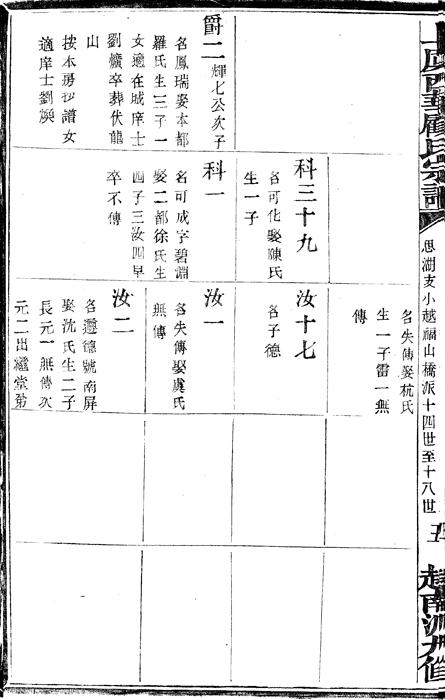 上虞西華顧氏宗譜
思湖支小越福山橋派十四世至十八世
五
爵二 輝七公次子
名鳳瑞娶本都
羅氏生三子一
女適在城庠士
劉爌卒葬伏龍
山
按本房抄譜女
適庠士劉
科三十九
名可化娶陳氏
生一子
科一
名可成字碧淵
娶二都徐氏生
四子三汝四早
卒不傳
名失傳娶杭氏
生一子雷一無
傳
汝十七
名子德
汝一
名失傳娶虞氏
無傳
汝二
名遵德號南屏
娶沈氏生二子
長元一無傳次
元二出繼堂弟